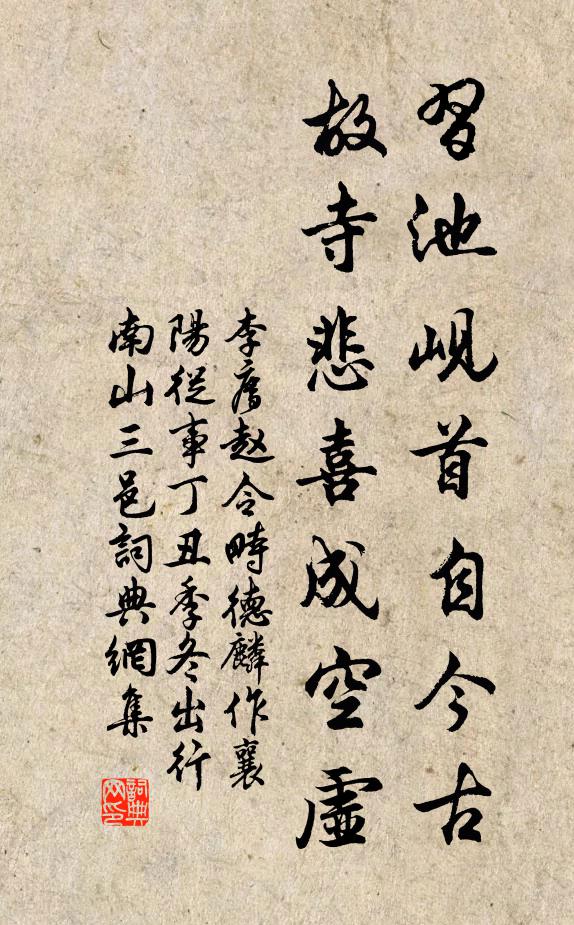 習池峴首自今古
故寺悲喜成空虛
李廌趙令畤德麟作襄
陽從事丁丑季冬出行
南山三邑詞典網集
詞典网印